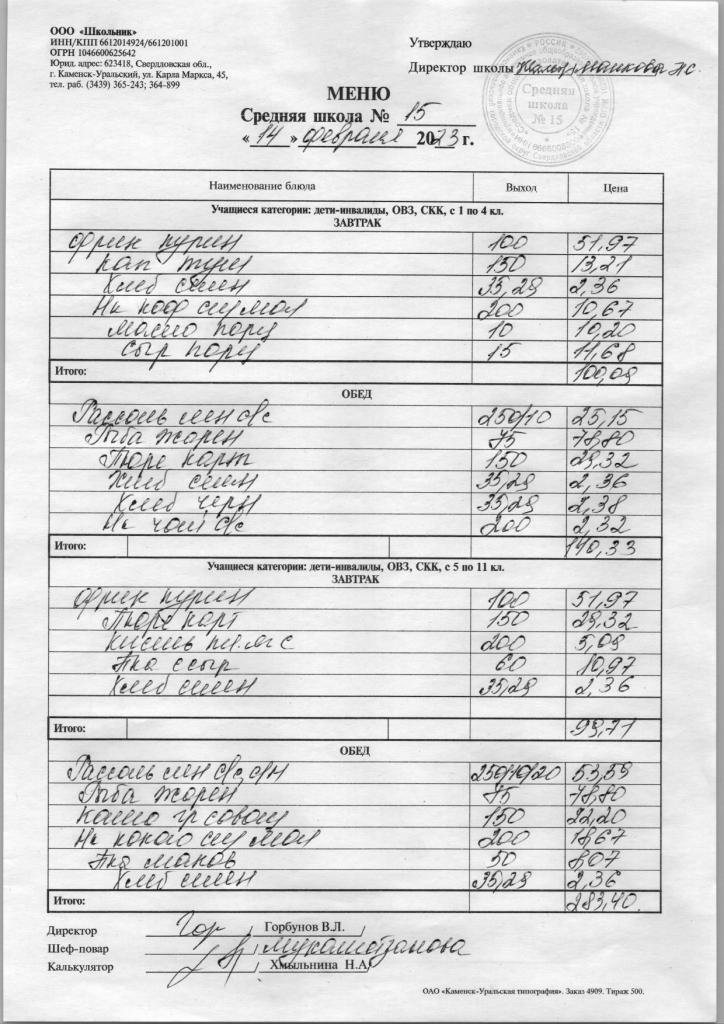 ООО «Школьник»
ИНН/КПП 6612014924/661201001
ОГРН 1046600625642
Юрид. адрес: 623418, Свердловская обл.,
г. Каменск-Уральский, ул. Карла Маркса, 45,
тел. раб. (3439) 365-243; 364-899
Утверждаю
Директор школы
Средняя школа № 15
МЕНЮ
Средняя школа № 15
« 14 » февраля 2023 г.
Наименование блюда Выход Цена
Учащиеся категории: дети-инвалиды, ОВЗ, СКК, с 1 по 4 кл.
ЗАВТРАК
фрик курин 100 51,97
кап туш 150 13,21
Хлеб семен 35,29 2,36
Н-к коф сгу мол 200 10,67
масло порц 10 10,20
сыр порц 15 11,68
Итого: 100,09
ОБЕД
Рассоль лен с/с 250/10 25,15
Рыба жарен 75 78,80
Пюре карт 150 29,32
Хлеб семен 35,29 2,36
Хлеб черн 35,29 2,38
Н-к чай с/с 200 2,32
Итого: 140,33
Учащиеся категории: дети-инвалиды, ОВЗ, СКК, с 5 по 11 кл.
ЗАВТРАК
фрик курин 100 51,97
Пюре карт 150 29,32
Кисель 200 5,09
Пка с сыр 60 10,97
Хлеб семен 35,29 2,36
Итого: 99,71
ОБЕД
Рассоль лен 250/10/20 53,39
Рыба жарен 75 78,80
Капло гр совощ 150 22,20
Н-к какао сгу мол 200 18,67
Пка маков 50 8,07
Хлеб семен 35,29 2,36
Итого: 183,40
Директор Гор Горбунов В.Л.
Шеф-повар
Калькулятор Хмыльнина Н.А.
ОАО «Каменск-Уральская типография». Заказ 4909. Тираж 500.